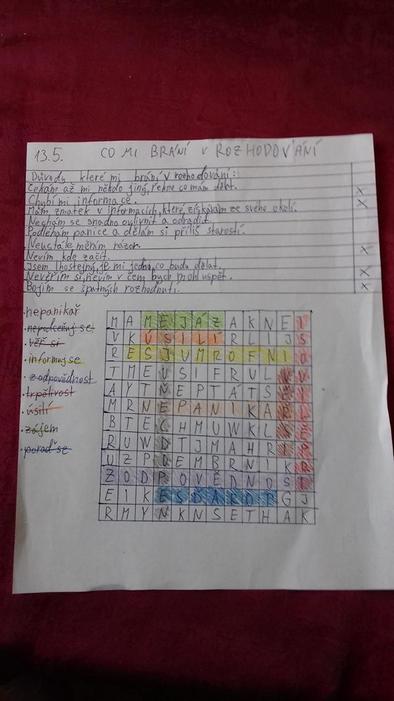 13.5. CO MI BRÁNÍ V ROZHODOVÁNÍ
Důvody, které mi brání v rozhodování:
Čekám až mi někdo jiný řekne co mám dělat.
Chybí mi informace. x
Mám zmatek v informacích, které získávám ze svého okolí. x
Nechám se snadno ovlivnit a odradit.
Podléhám panice a dělám si příliš starostí.
Neustále měním názor. x
Nevím kde začít.
Jsem lhostejný, je mi jedno, co budu dělat.
Nevěřím si, nevím v čem bych mohl uspět. x
Bojím se špatných rozhodnutí. x
·nepanikař
·věř si
·informuj se
·zodpovědnost
·trpělivost
·úsilí
·zájem
·poraď se
M A M E J Á Z A K N E I
V K Ú S I L Í R L I J S
R E S J U M R O F N I
A Y T N E P T Á T S
M R N E P A N I K A Ř
B T E C H M U W K L
R U W D T J M A H R
U Z P D E M B R N I K R
Z O D P O V Ě D N O S T
E I K E S Ď A R O P G J
R M Y N K N S E T H A K